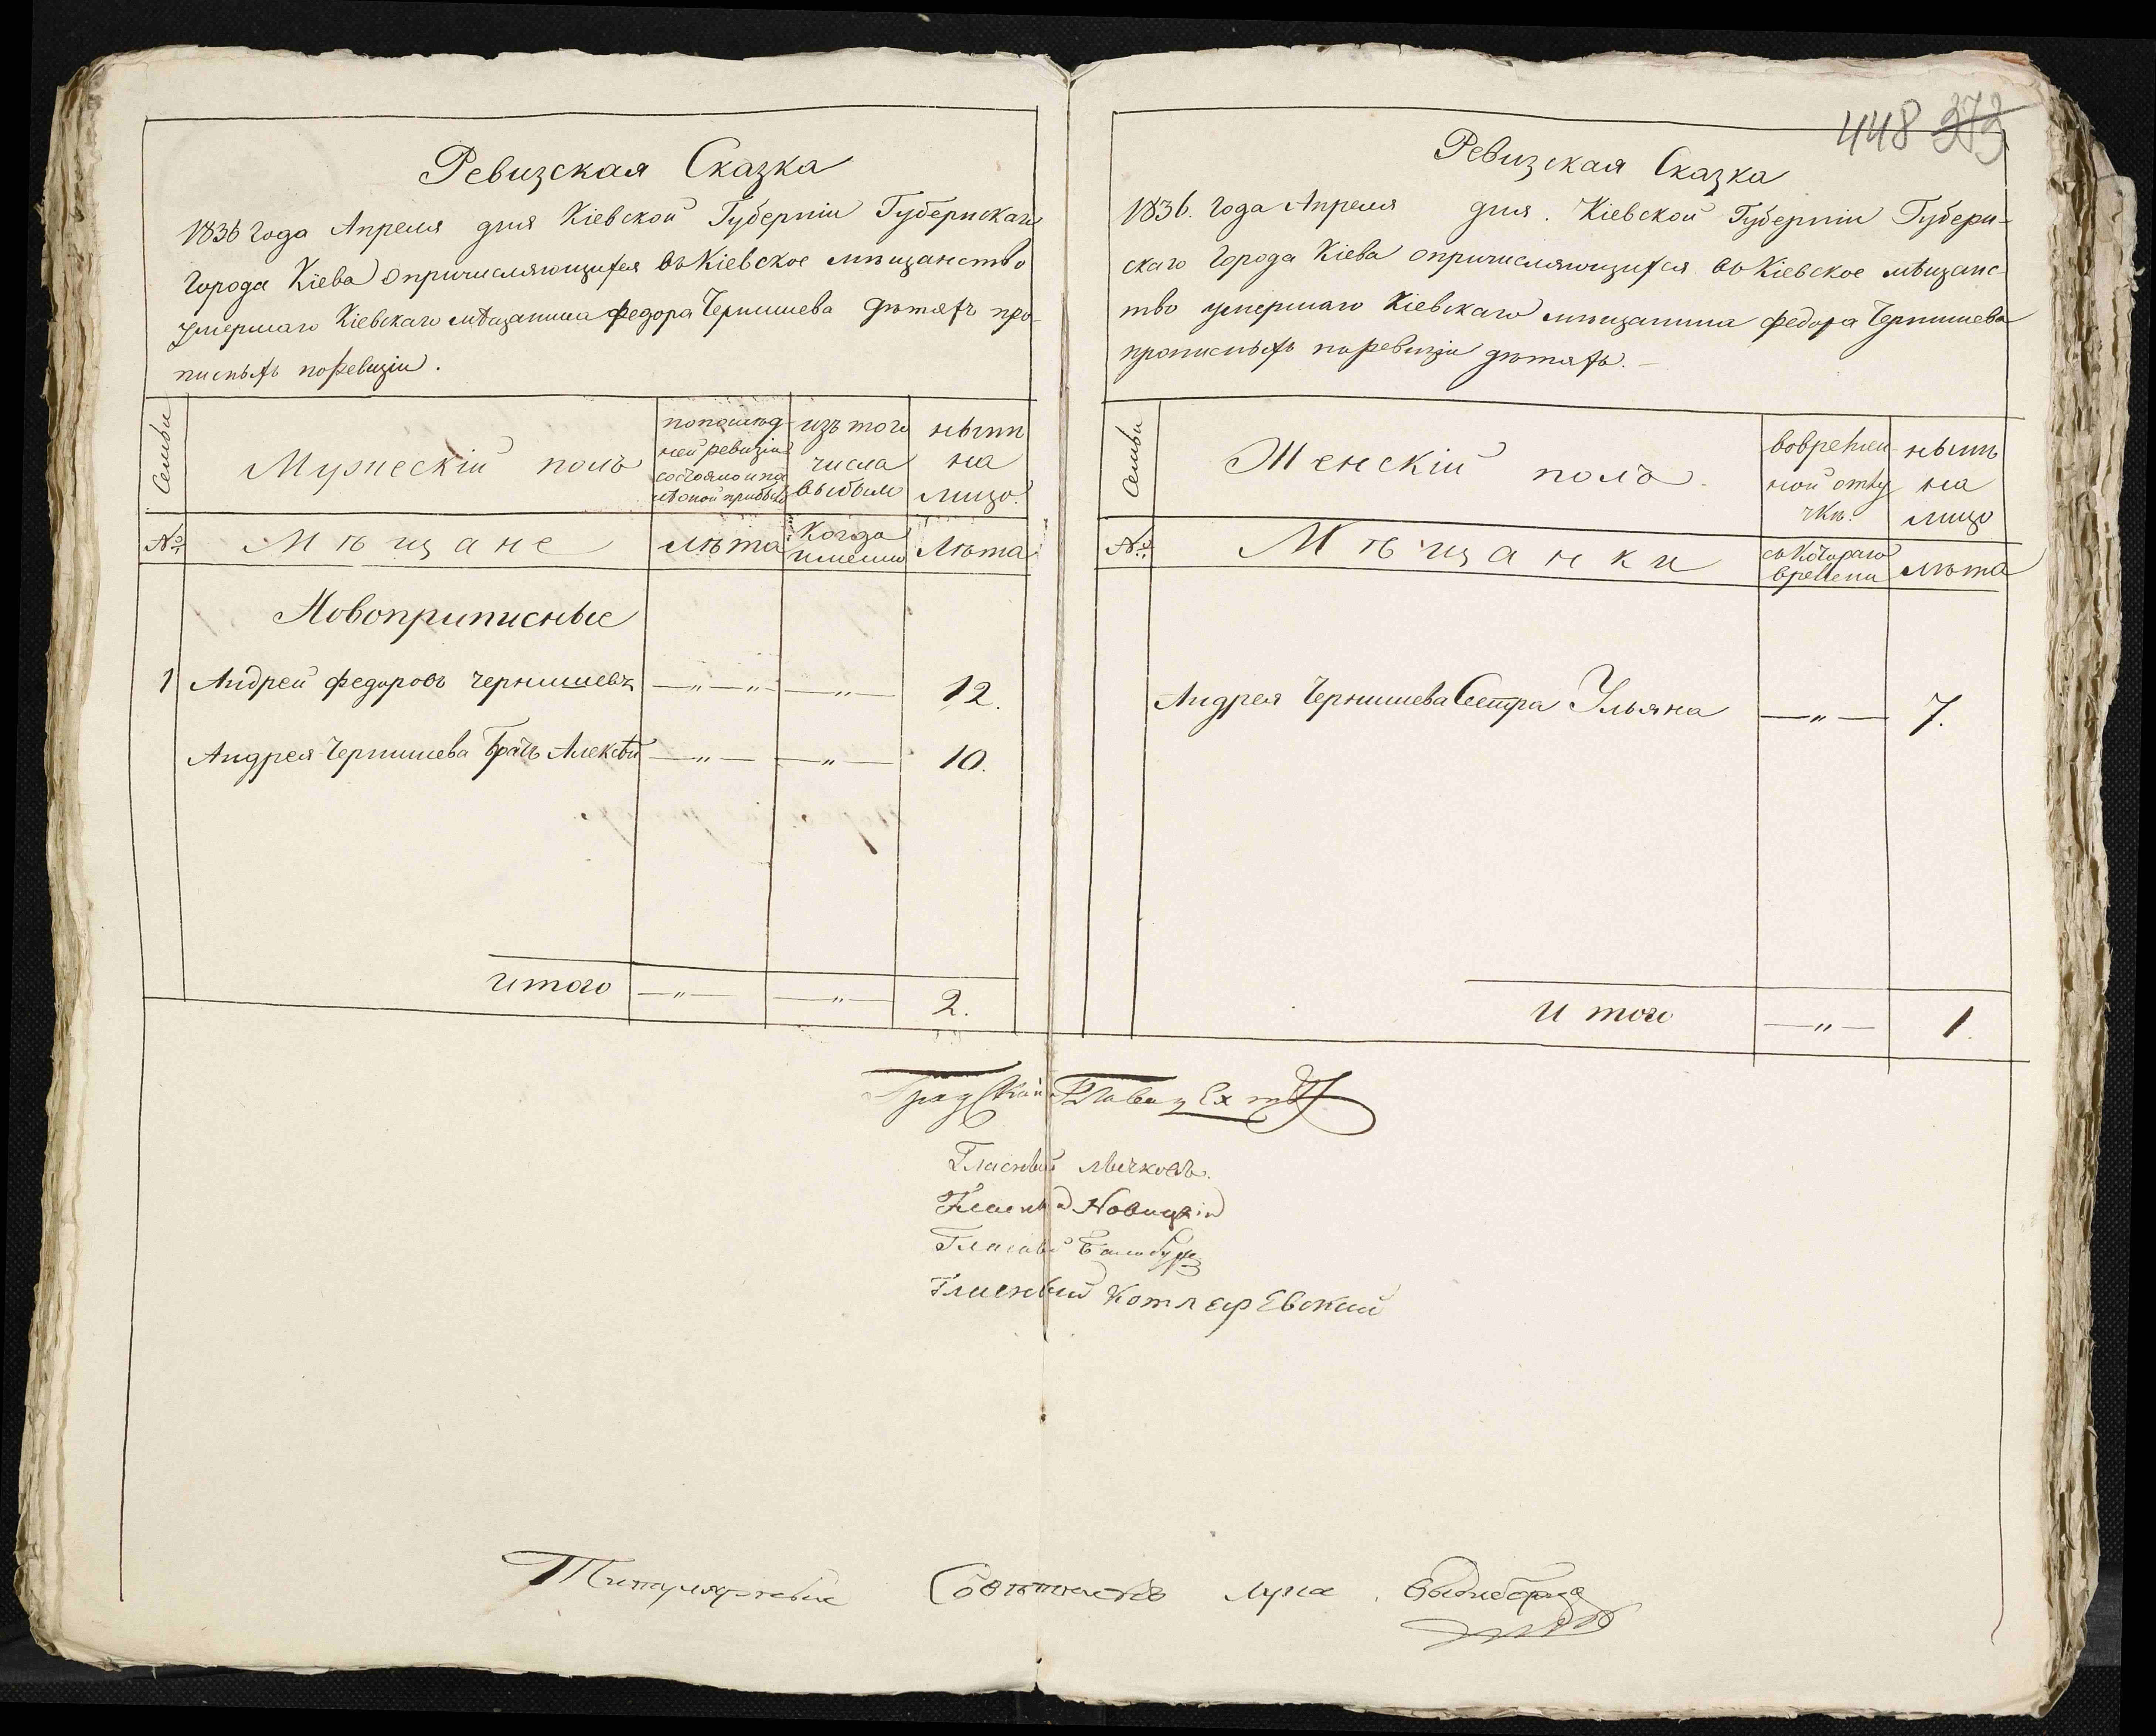 Ревизская Сказка
1836 года Апреля дня Кіевской Губерніи Губернскаго
города Кіева о причисляющихся въ Кіевское мѣщанство
умершаго Кіевскаго мѣщанина Федора Чернишева дѣтяхъ про-
писныхъ по ревизіи.
Семьи
Мужескій полъ
по послѣд-
ней ревизіи
состояло и по
слѣ оной прибыло
изъ того
числа
выбыло
нынѣ
на
лицо.
№
Мѣщане
лѣта
Когда
имянно
Лѣта
Новоприписные
1 Андрей Федоровъ Чернишевъ —„—„— —„— 12.
Андрея Чернишева Братъ Алексѣй —„— —„— 10.
итого —„— —„— 2.
448 373
Ревизская Сказка
1836. года Апреля дня. Кіевской Губерніи Губерн-
скаго города Кіева о причисляющихся въ Кіевское мѣщанс-
тво умершаго Кіевскаго мѣщанина Федора Чернишева
прописныхъ по ревизіи дѣтяхъ. —
Семьи
Женскій полъ.
во времен-
ной отлу
чкѣ.
нынѣ
на
лицо
№
Мѣщанки
съ котораго
времени
лѣта
Андрея Чернишева Сестра Ульяна —„— 7.
и того —„— 1.
Градскій Глава
Гласный
Гласный Новицкій
Гласный Балабуха
Гласный Котляревский
Титулярный Совѣтникъ Лука